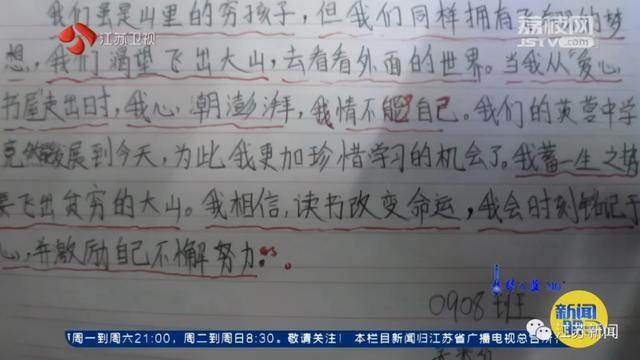 江苏卫视
荔枝网
JSTV.com
我们虽是山里的穷孩子，但我们同样拥有
的梦
想，我们渴望飞出大山，去看看外面的世界。当我从“爱心
书屋”走出时，我心潮澎湃，我情不能自己。我们的英莹中学
竟然发展到今天，为此我更加珍惜学习的机会了。我蓄一生之势
要飞出贫穷的大山。我相信，读书改变命运，我会时刻铭记于
心，并激励自己不懈努力。
0908班
新闻
周一到周六21:00，周二到周日8:30。敬请关注！ 本栏目新闻归江苏省广播电视总台所
江苏新闻